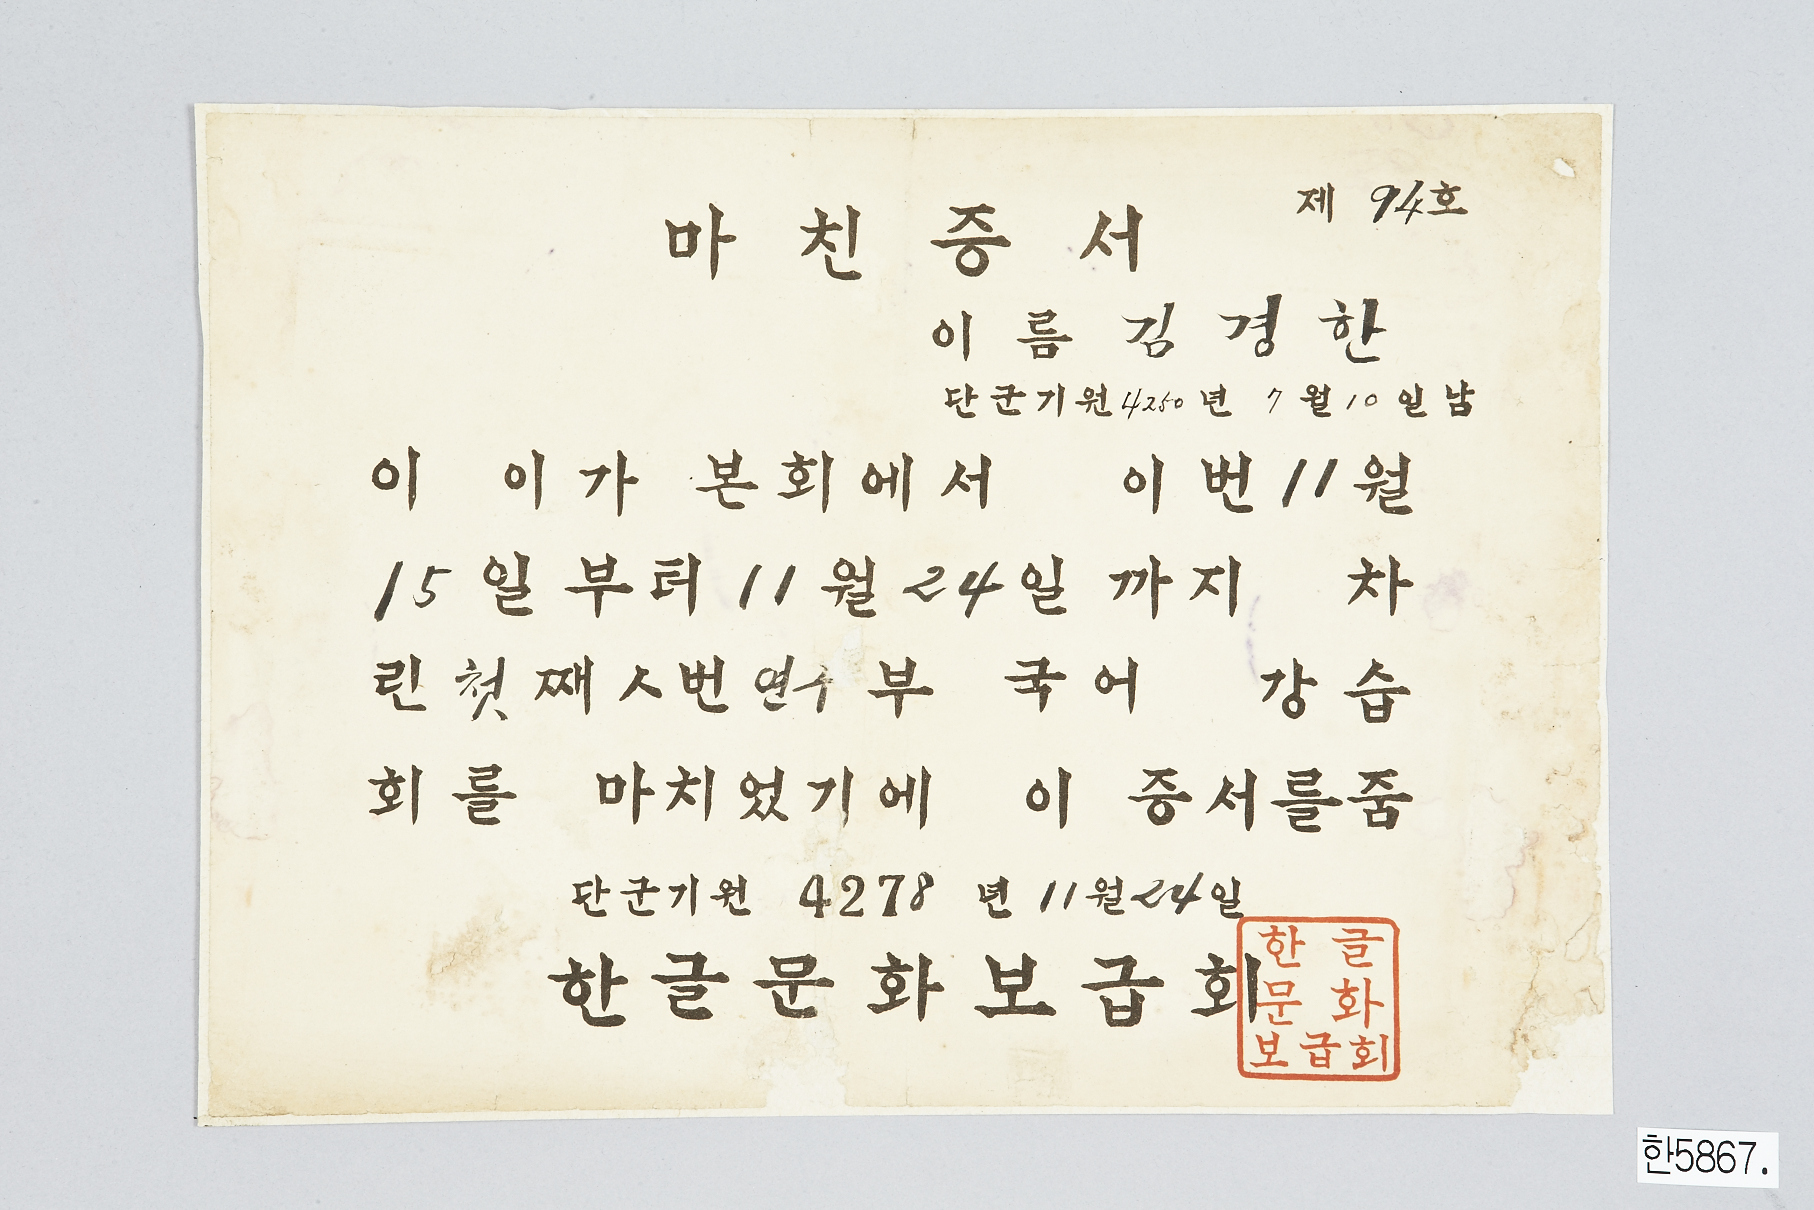 제 94호
마친증서
이름 김경한
단군기원4250년 7월10일 남
이 이가 본회에서 이번11월
15일부터11월24일까지 차
린첫째ㅅ번연수부 국어 강습
회를 마치었기에 이 증서를줌
단군기원 4278년 11월24일
한글문화보급회
한글
문화
보급회
한5867.